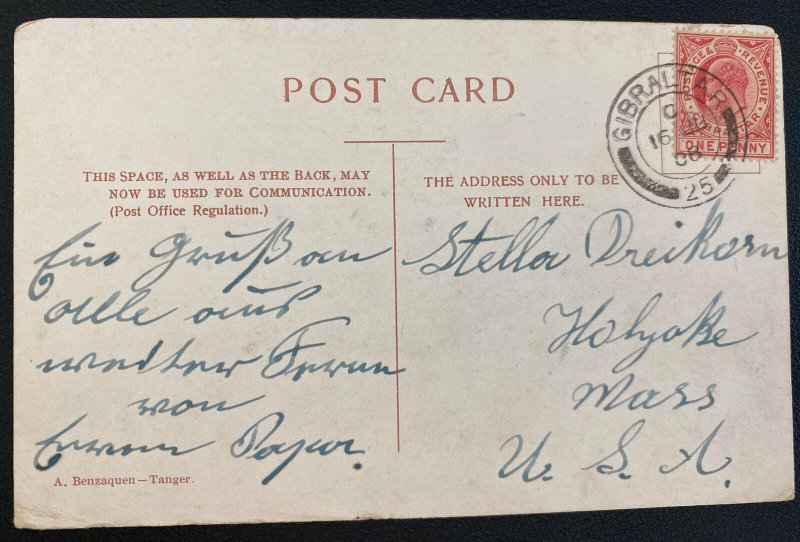 POST CARD
THIS SPACE, AS WELL AS THE BACK, MAY
NOW BE USED FOR COMMUNICATION.
(Post Office Regulation.)
Ein Gruß an
alle aus
weiter Ferne
von
Eurem Papa.
A. Benzaquen—Tanger.
THE ADDRESS ONLY TO BE
WRITTEN HERE.
Stella Dreikorn
Holyoke
Mass
U. S. A.
GIBRALTAR
16
08
25
POSTAGE & REVENUE
GIBRALTAR
ONE PENNY